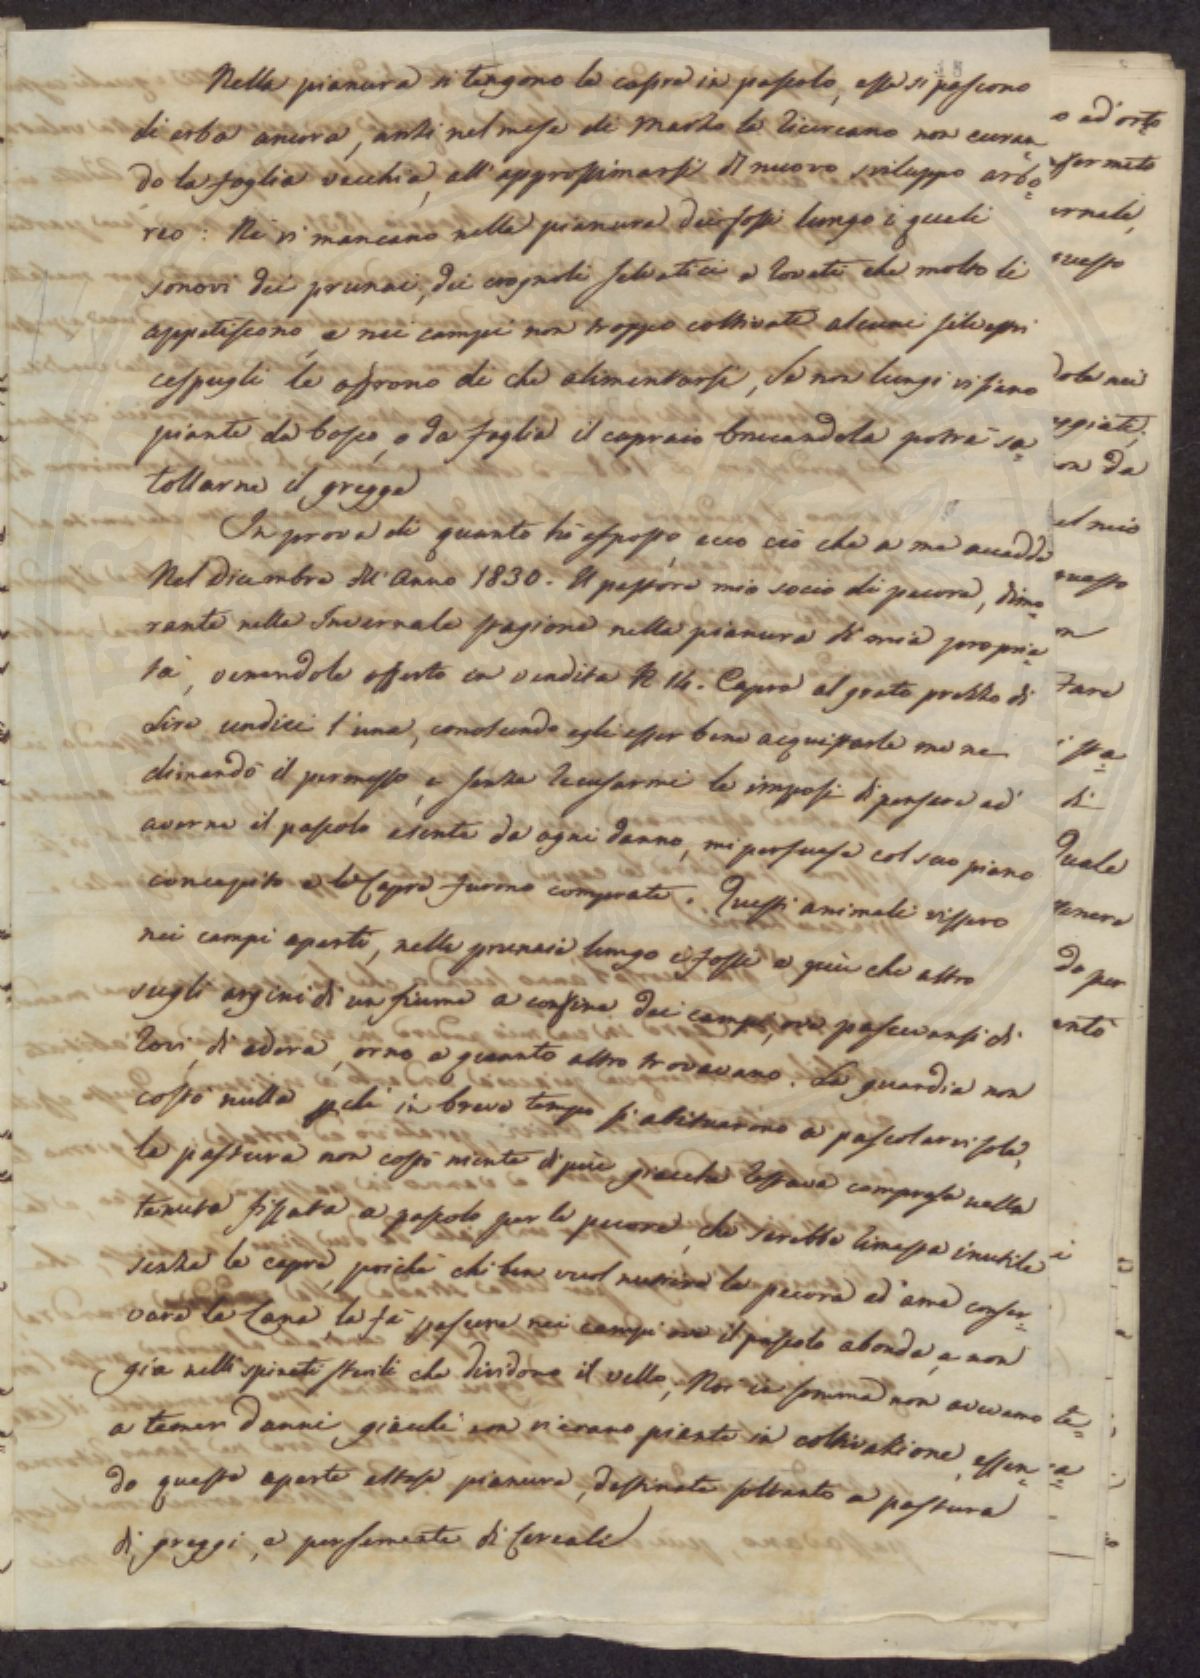 Nella pianura si tengono le capre in pascolo, esse si pascono
di erba ancora, anzi nel mese di Marzo la ricercano non curan=
do la foglia vecchia, all'approssimarsi di nuovo sviluppo arbo=
reo: Nè vi mancano nella pianura dei fossi lungo i quali
sonovi dei prunai, dei crognoli selvatici e roveti che molto li
appetiscono, e nei campi non troppo coltivati alcuni silvestri
cespugli le offrono di che alimentarsi, Se non lungi vi siano
piante da bosco, o da foglia il capraio brucandola potrà sa=
tollarne il gregge
In prova di quanto hò esposto, ecco ciò che a me accadde
Nel Dicembre dell'Anno 1830. Il pastore mio socio di pecore, dimo=
rante nella Invernale stagione nella pianura di mia proprie=
tà, venendole offerte in vendita N. 14. Capre al grato prezzo di
Lire undici l'una, conoscendo egli esser bene acquistarle me ne
dimandò il permesso, e senza recusarmi le imposi di pensare ad
averne il pascolo esente da ogni danno, mi persuase col suo piano
concepito e le Capre furono comperate. Questi animali vissero
nei campi aperti, nelle prunaie lungo i fossi e più che altro
sugli argini di un fiume a confine dei campi, ove pascevansi di
rovi, di edera, orno e quanto altro trovavano. La guardia non
costò nulla pchè in breve tempo si abituarono a pascolarvi sole,
la pastura non costò niente di più giacchè restava compresa nella
tenuta fissata a pascolo per le pecore, che sarebbe rimasta inutile
senza le capre, poichè chi ben vuol nutrire le pecore ed ama conser=
vare la Lana, le fà pascere nei campi ove il pascolo abonda, e non
già nelli spineti sterili che dividono il vello; Noi in somma non avevamo
a temer danni giacchè non vi erano piante in coltivazione, essen=
do queste aperte estese pianure, destinate soltanto a pastura
di greggi, e per semente di Cereali
o ad orto
ernale,
questo
el mio
questo
i sta=
di
Quale
do per